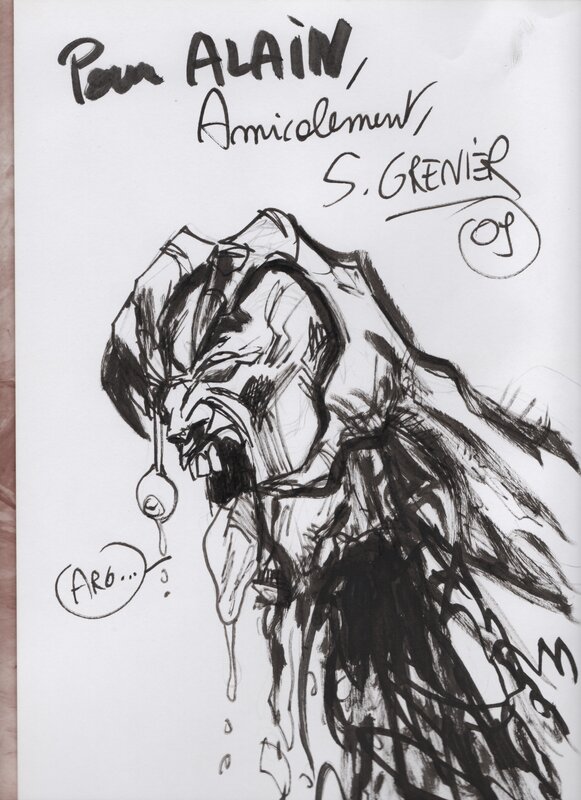 Pour ALAIN,
Amicalement,
S. GRENIER
09
ARG...